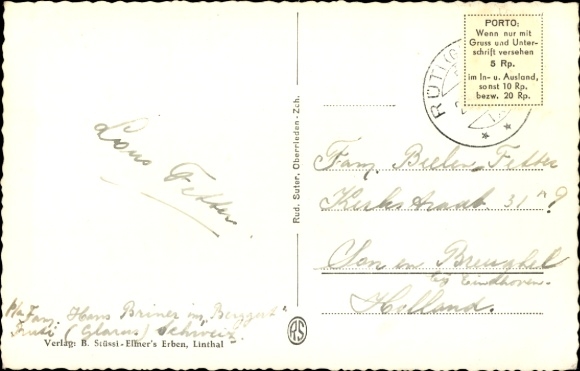 PORTO:
Wenn nur mit
Gruss und Unter-
schrift versehen
5 Rp.
im In- u. Ausland,
sonst 10 Rp.
bezw. 20 Rp.
RÜTI (G
Rud. Suter, Oberrieden-Zch.
Fetter
Fam. Bielen, Fetter
Kerkstraat 31 a 9
Son en Breughel
bij Eindhoven.
Holland.
p/a Fam. Hans Briner im „Berggut"
(Glarus) Schweiz.
RS
Verlag: B. Stüssi-Elmer's Erben, Linthal